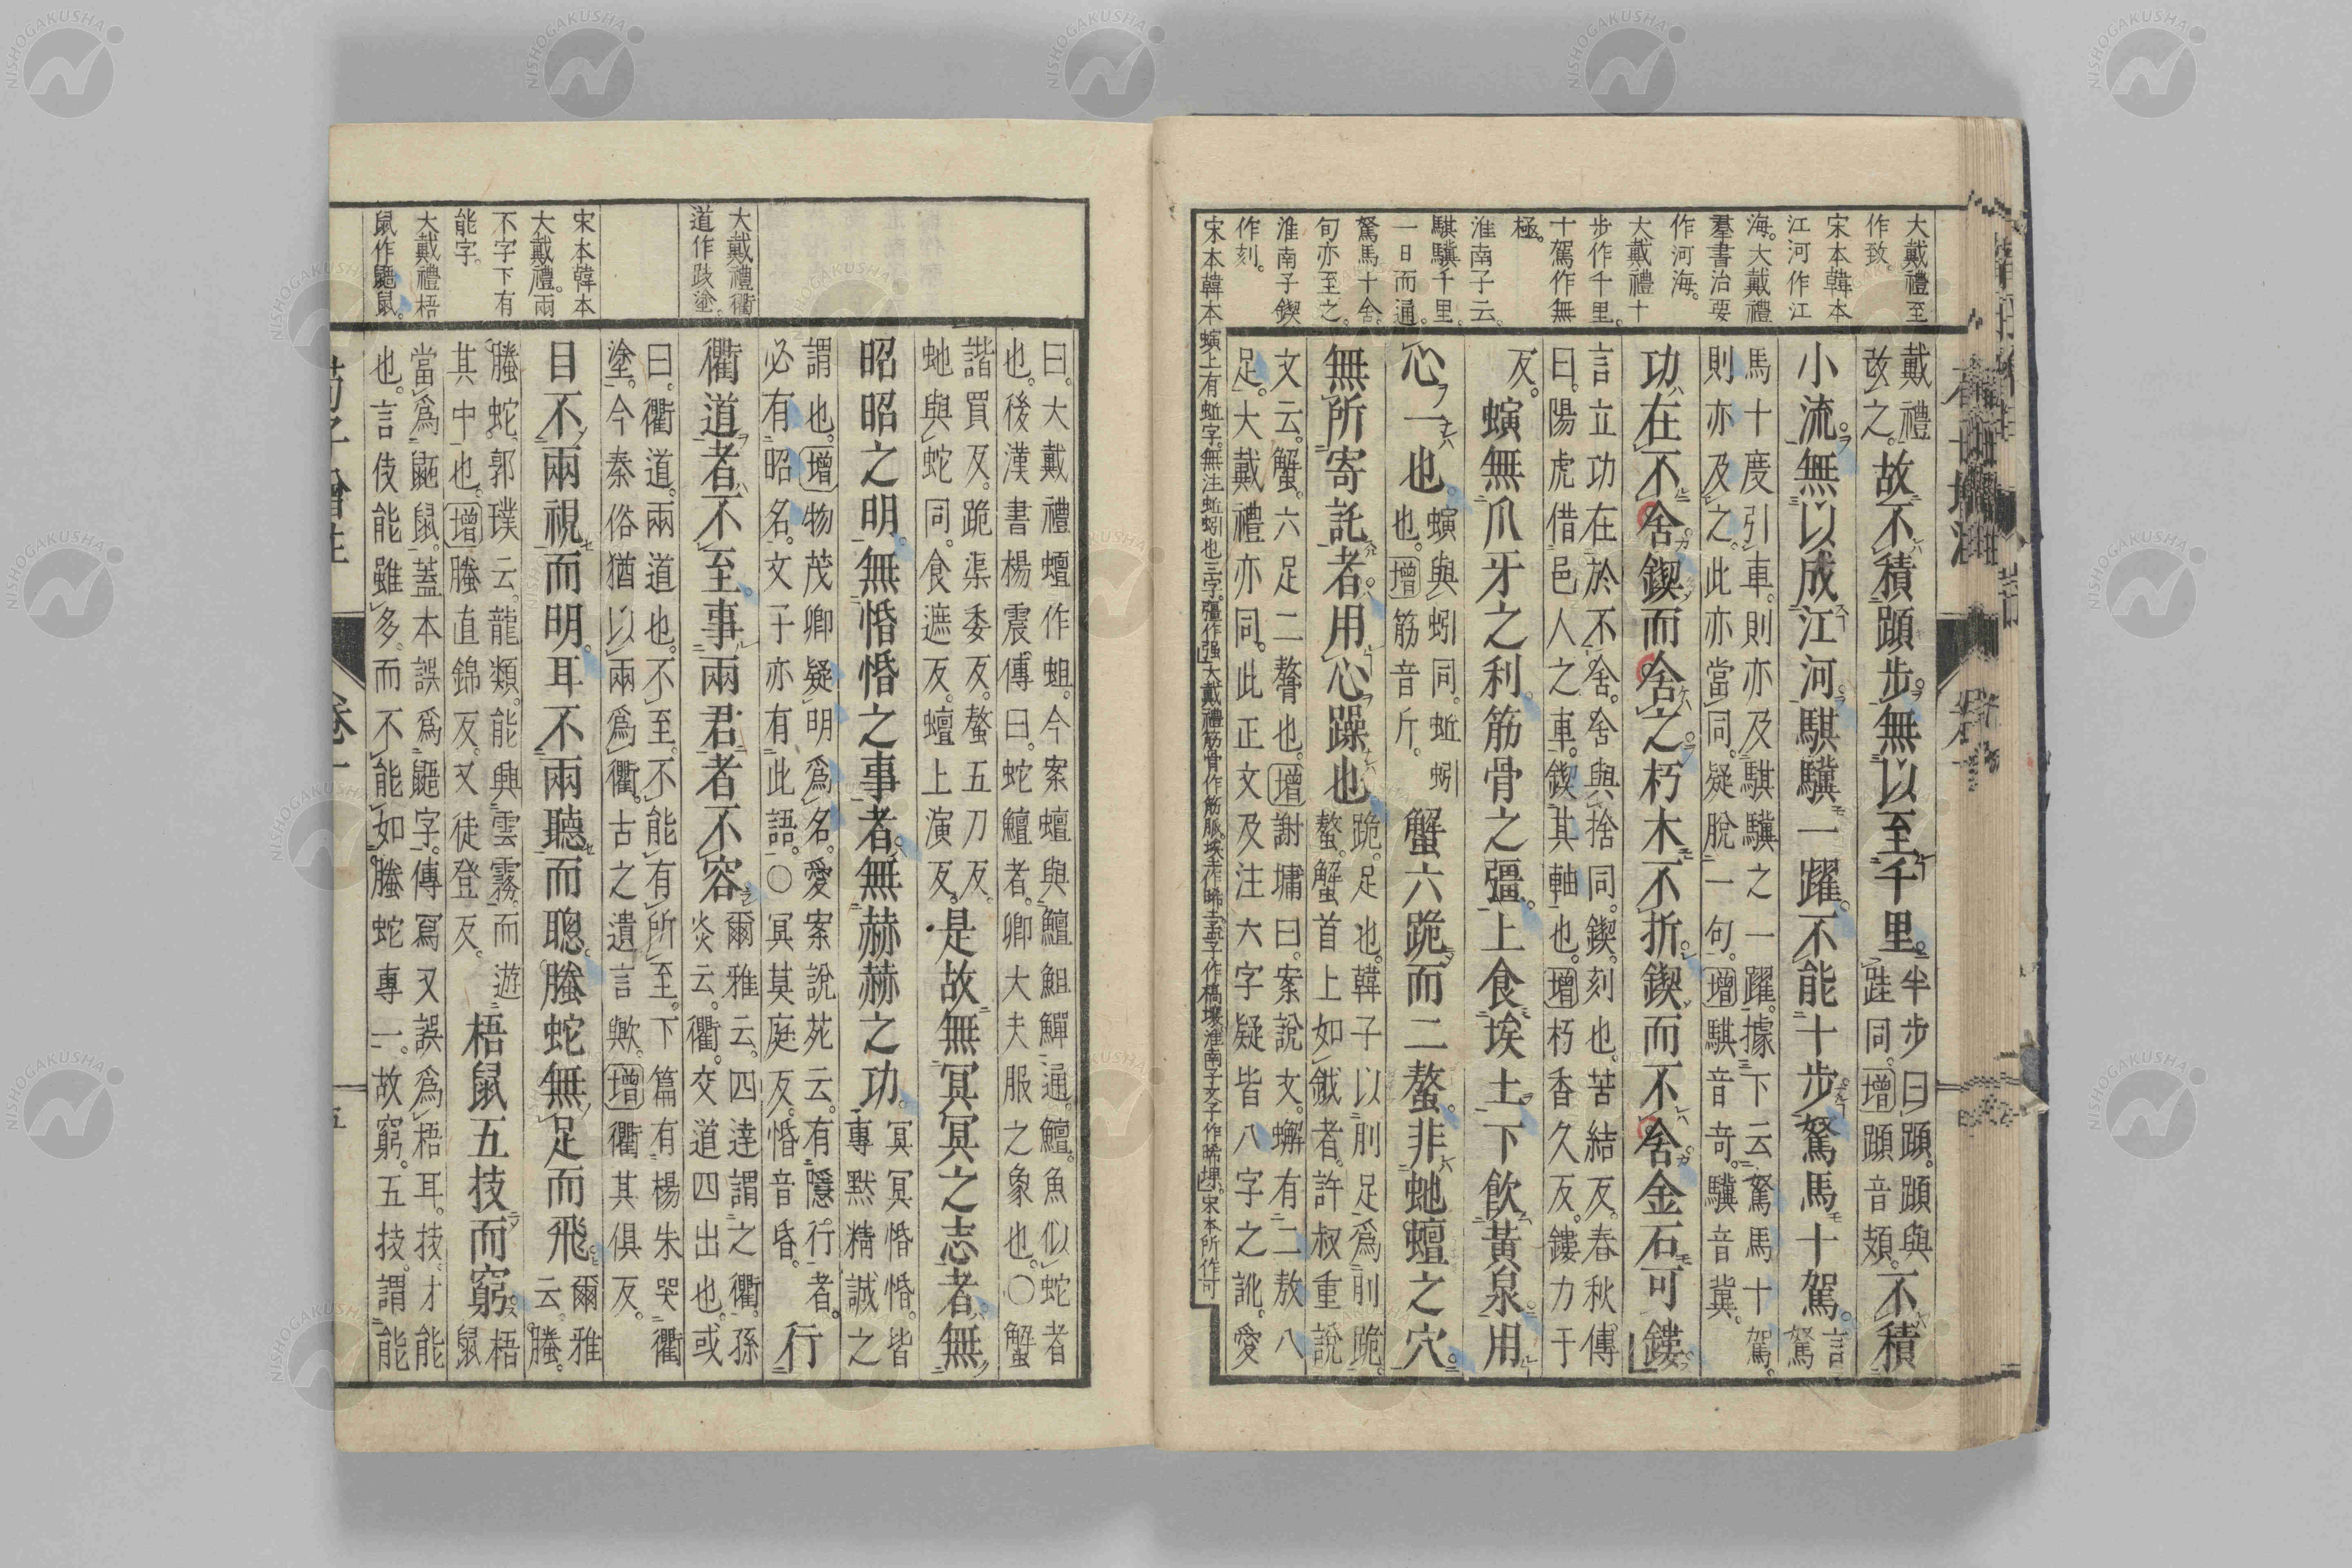 大戴禮至
作致
宋本韓本
江河作江
海。大戴禮
羣書治要
作河海。
大戴禮十
步作千里。
十駕作無
極。
淮南子云。
騏驥千里。
一日而通。
駑馬十舍。
旬亦至之。
淮南子鍥
作刻。
戴禮
致之。
故不積蹞步。無以至千里。
半步曰蹞。蹞與
跬同。增蹞音頍。
不積
小流。無以成江河。騏驥一躍。不能十步。駑馬十駕。
言
駑
馬十度引車。則亦及騏驥之一躍。據下云駑馬十駕。
則亦及之。此亦當同。疑脫一句。增騏音奇。驥音冀。
功在不舍。鍥而舍之。朽木不折。鍥而不舍。金石可鏤。
言立功在於不舍。舍與捨同。鍥。刻也。苦結反。春秋傳
曰。陽虎借邑人之車。鍥其軸也。增朽香久反。鏤力于
反。
螾無爪牙之利。筋骨之彊。上食埃土。下飲黃泉。用
心一也。
螾與蚓同。蚯蚓
也。增筋音斤。
蟹六跪而二螯。非虵蟺之穴。
無所寄託者。用心躁也。
跪。足也。韓子以刖足爲刖跪。
螯。蟹首上如鉞者。許叔重說
文云。蟹。六足二螯也。增謝墉曰。案說文。蠏有二敖八
足。大戴禮亦同。此正文及注六字疑皆八字之訛。愛
宋本韓本螾上有蚯字。無注蚯蚓也三字。彊作强。大戴禮筋骨作筋脈。埃土作晞土。孟子作槁壤。淮南子文子作晞堁。宋本所作可
大戴禮衢
道作跂塗。
宋本韓本
大戴禮。兩
不字下有
能字。
大戴禮梧
鼠作鼫鼠。
曰。大戴禮蟺作蛆。今案蟺與鱣䱇鱓通。鱣。魚似蛇者
也。後漢書楊震傳曰。蛇鱣者。卿大夫服之象也。○蟹
諧買反。跪渠委反。螯五刀反。
虵與蛇同。食遮反。蟺上演反。
是故無冥冥之志者。無
昭昭之明。無惛惛之事者。無赫赫之功。
冥冥惛惛。皆
專默精誠之
謂也。增物茂卿疑明爲名。愛案說苑云。有隱行者。
必有昭名。文子亦有此語。○冥莫庭反。惛音昏。
行
衢道者不至。事兩君者不容。
爾雅云。四達謂之衢。孫
炎云。衢。交道四出也。或
曰。衢道。兩道也。不至。不能有所至。下篇有楊朱哭衢
塗。今秦俗猶以兩爲衢。古之遺言歟。增衢其俱反。
目不兩視而明。耳不兩聽而聰。螣蛇無足而飛。
爾雅
云。螣。
螣蛇。郭璞云。龍類。能興雲霧。而遊
其中也。增螣直錦反。又徒登反。
梧鼠五技而窮。
梧
鼠
當爲鼫鼠。蓋本誤爲鼯字。傳寫又誤爲梧耳。技。才能
也。言伎能雖多。而不能如螣蛇專一。故窮。五技。謂能
荀子增注
卷一
五